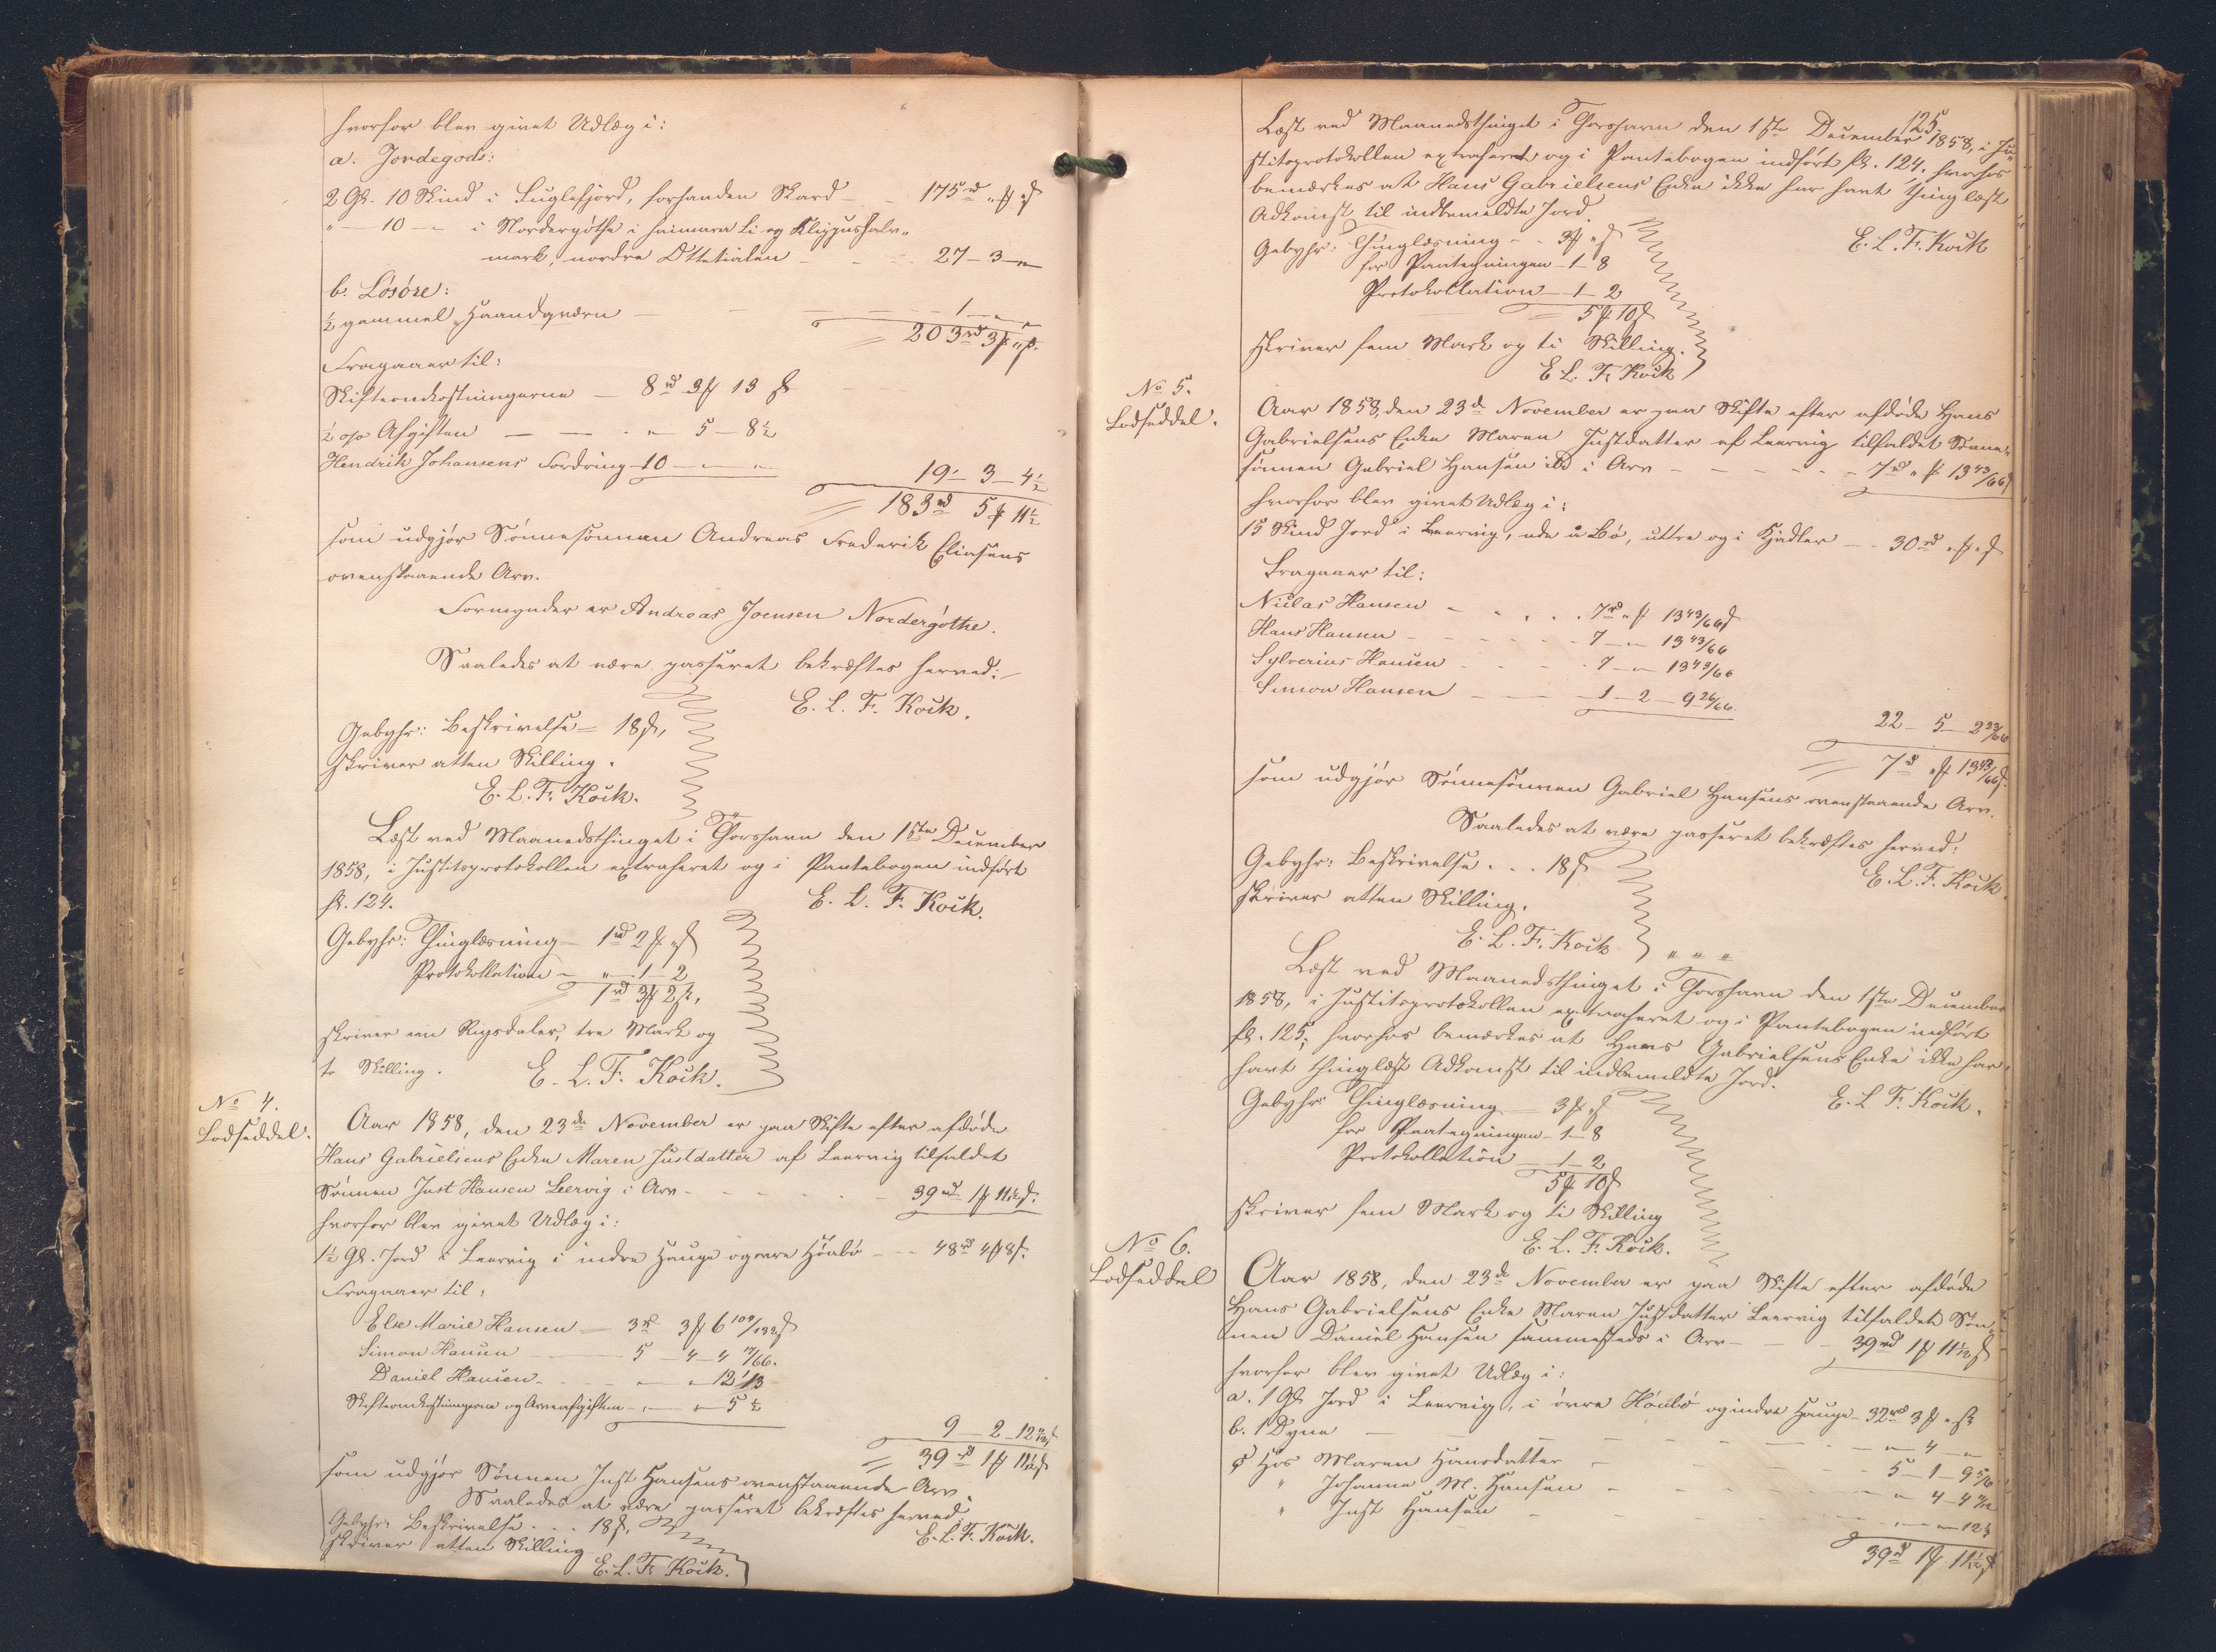 hvorfor blev givet Udlæg i:
a. Jordegods:
2 Gl. 10 Skind i Fuglefjord, forhanden Skard — 175rd „ „
„ — 10 — i Nordergøthe i heimara Li og Klippushalv-
mark, nordre Ottetialen — 27 — 3 — „
b. Løsøre:
½ gammel Haandqværn — 1 — „ — „
203rd 3 „
Fragaaer til:
Skifteomkostningerne — 8rd 3 13
½ op Afgiften — „ 5 — 8½
Hendrik Johansens Fordring — 10 — „ — „
19 — 3 — 4½
183rd 5 11½
som udgjør Sønnesønnen Andreas Frederik Eliasens
ovenstaaende Arv.
Formynder er Andreas Joensen Nordergøthe.
Saaledes at være passeret bekræftes herved:
E. L. F. Kock.
Gebyhr: Beskrivelse = 18 ,
skriver atten Skilling.
E. L. F. Kock.
Læst ved Maanedsthinget i Thorshavn den 1ste December
1858, i Justitsprotokollen extraheret og i Pantebogen indført
fl. 124.
E. L. F. Kock.
Gebyhr: Thinglæsning — 1rd 2 „
Protokollation — „ — 1 — 2
1rd 3 2 ,
skriver een Rigsdaler, tre Mark og
to Skilling.
E. L. F. Kock.
No 4.
Lodseddel.
Aar 1858, den 23de November er paa Skifte efter afdøde
Hans Gabrielsens Enke Maren Justdatter af Leervig tilfaldet
Sønnen Just Hansen Leervig i Arv — 39rd 1 11½
hvorfor blev givet Udlæg i:
1½ Gl. Jord i Leervig i indre Hauge og øvre Hønbø — 48rd 4 8
Fragaaer til:
Else Marie Hansen — 3rd 3 6 109/132
Simon Hansen — 5 — 4 — 4 17/66.
Daniel Hansen — „ — „ — 12 1/3
Skifteomkostningerne og Arveafgiften — „ — „ — 5 ½
9 — 2 — 12
39rd 1 11½
som udgjør Sønnen Just Hansens ovenstaaende Arv.
Saaledes at være passeret bekræftes herved:
E. L. F. Kock.
Gebyhr: Beskrivelse . . . 18 ,
skriver atten Skilling
E. L. F. Kock.
125.
Læst ved Maanedsthinget i Thorshavn den 1ste December 1858, i Ju-
stitsprotokollen extraheret og i Pantebogen indført fl. 124, hvorhos
bemærkes at Hans Gabrielsens Enke ikke har havt thinglæst
Adkomst til indbemeldte Jord.
E. L. F. Kock
Gebyhr: Thinglæsning — 3 „
for Paategningen — 1 — 8
Protokollation — 1 — 2
5 10
skriver fem Mark og ti Skilling.
E. L. F. Kock
No 5.
Lodseddel.
Aar 1858, den 23de November er paa Skifte efter afdøde Hans
Gabrielsens Enke Maren Justdatter af Leervig tilfaldet Sønne-
sønnen Gabriel Hansen ibd i Arv — 7rd „ 13 43/66
hvorfor blev givet Udlæg i:
15 Skind Jord i Leervig, ude a Bø, uttre og i Kjadler — 30rd „ „
Fragaaer til:
Niclas Hansen — 7rd „ 13 43/66
Hans Hansen — 7 — „ — 13 43/66
Sylverius Hansen — 7 — „ — 13 43/66
Simon Hansen — 1 — 2 — 9 26/66
22 — 5 — 2 23/66
7rd „ 13 43/66
som udgjør Sønnesønnen Gabriel Hansens ovenstaaende Arv.
Saaledes at være passeret bekræftes herved:
E. L. F. Kock.
Gebyhr: Beskrivelse . . . 18
skriver atten Skilling.
E. L. F. Kock
Læst ved Maanedsthinget i Thorshavn den 1ste December
1858, i Justitsprotokollen extraheret og i Pantebogen indført
fl. 125, hvorhos bemærkes at Hans Gabrielsens Enke ikke har
havt thinglæst Adkomst til indbemeldte Jord.
E. L. F. Kock.
Gebyhr: Thinglæsning — 3 „
for Paategningen — 1 — 8
Protokollation — 1 — 2
5 10
skriver fem Mark og ti Skilling
E. L. F. Kock.
No 6.
Lodseddel
Aar 1858, den 23de November er paa Skifte efter afdøde
Hans Gabrielsens Enke Maren Justdatter Leervig tilfaldet Søn-
nen Daniel Hansen sammesteds i Arv — 39rd 1 11½
hvorfor blev givet Udlæg i:
a. 1 Gl. Jord i Leervig, i øvre Hønbø og indre Hauge — 32rd 3 „
b. 1 Dyne — „ — 4 — „
Hos Maren Hansdatter — 5 — 1 — 9 5/6
„ Johanne M. Hansen — „ 4 — 4
„ Just Hansen — „ — „ — 12 1/3
39rd 1 11½